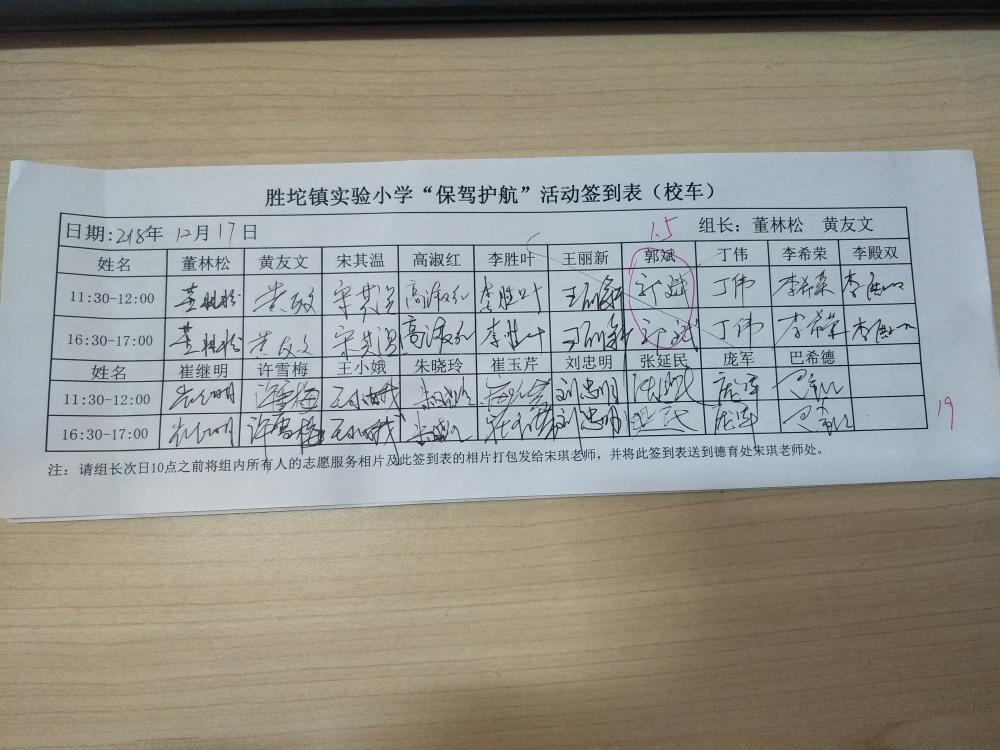 胜坨镇实验小学“保驾护航”活动签到表（校车）
日期:2018年 12月 17日 1.5 组长：董林松 黄友文
姓名 董林松 黄友文 宋其温 高淑红 李胜叶 王丽新 郭斌 丁伟 李希荣 李殿双
11:30-12:00 董林松 黄友文 宋其温 高淑红 李胜叶 王丽新 丁伟 李希荣
16:30-17:00 董林松 黄友文 宋其温 高淑红 李胜叶 王丽新 丁伟 李希荣
姓名 崔继明 许雪梅 王小娥 朱晓玲 崔玉芹 刘忠明 张延民 庞军 巴希德
11:30-12:00 许雪梅 王小娥 朱晓玲 刘忠明 庞军
16:30-17:00 许雪梅 王小娥 刘忠明 庞军
19
注：请组长次日10点之前将组内所有人的志愿服务相片及此签到表的相片打包发给宋琪老师，并将此签到表送到德育处朱琪老师处。